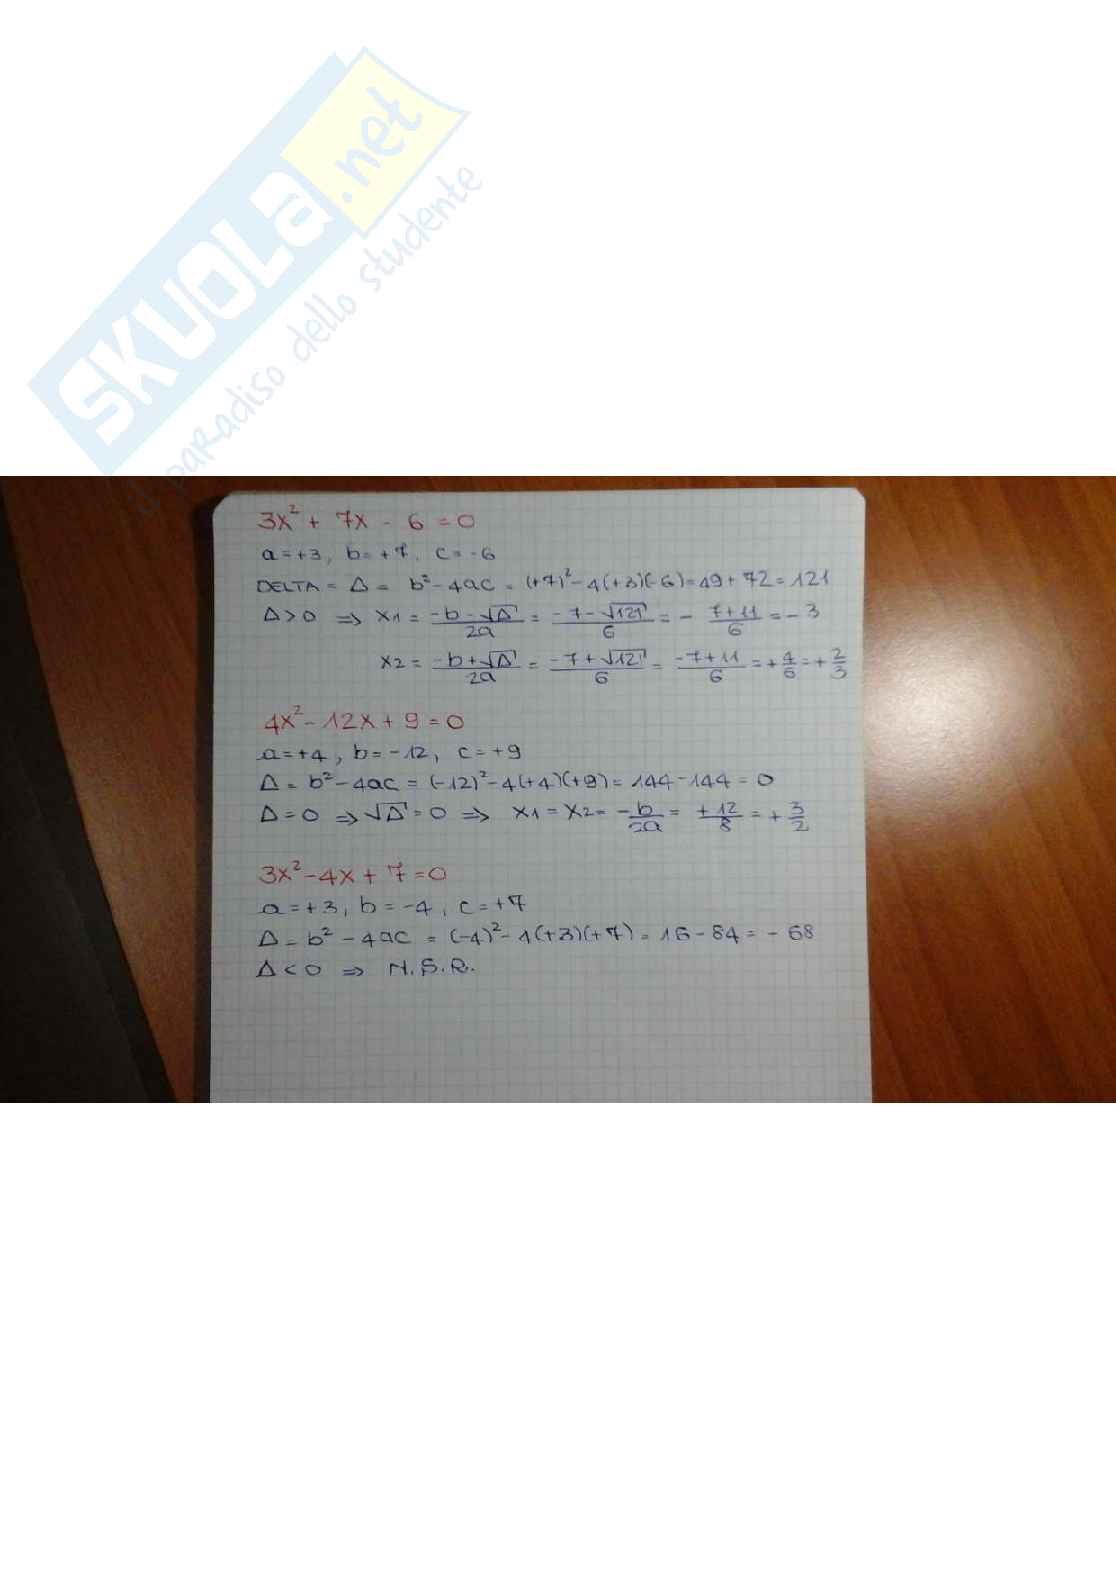 SKUOLA.net
il paradiso dello studente
3x² + 7x - 6 = 0
a = +3, b = +7, c = -6
DELTA = Δ = b² - 4ac = (+7)² - 4(+3)(-6) = 49 + 72 = 121
Δ > 0 ⇒ x1 = (-b - √Δ)/2a = (-7 - √121)/6 = - (7+11)/6 = - 3
x2 = (-b + √Δ)/2a = (-7 + √121)/6 = (-7 + 11)/6 = + 4/6 = + 2/3
4x² - 12x + 9 = 0
a = +4, b = -12, c = +9
Δ = b² - 4ac = (-12)² - 4(+4)(+9) = 144 - 144 = 0
Δ = 0 ⇒ √Δ = 0 ⇒ x1 = x2 = - b/2a = +12/8 = + 3/2
3x² - 4x + 7 = 0
a = +3, b = -4, c = +7
Δ = b² - 4ac = (-4)² - 4(+3)(+7) = 16 - 84 = - 68
Δ < 0 ⇒ N.S.R.